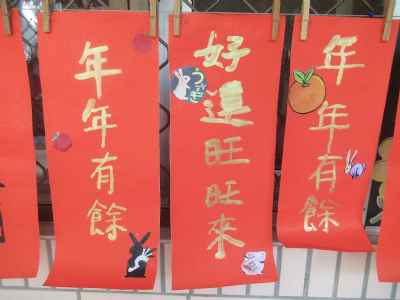 年年有餘
好運旺旺來
うさぎ
年年有餘